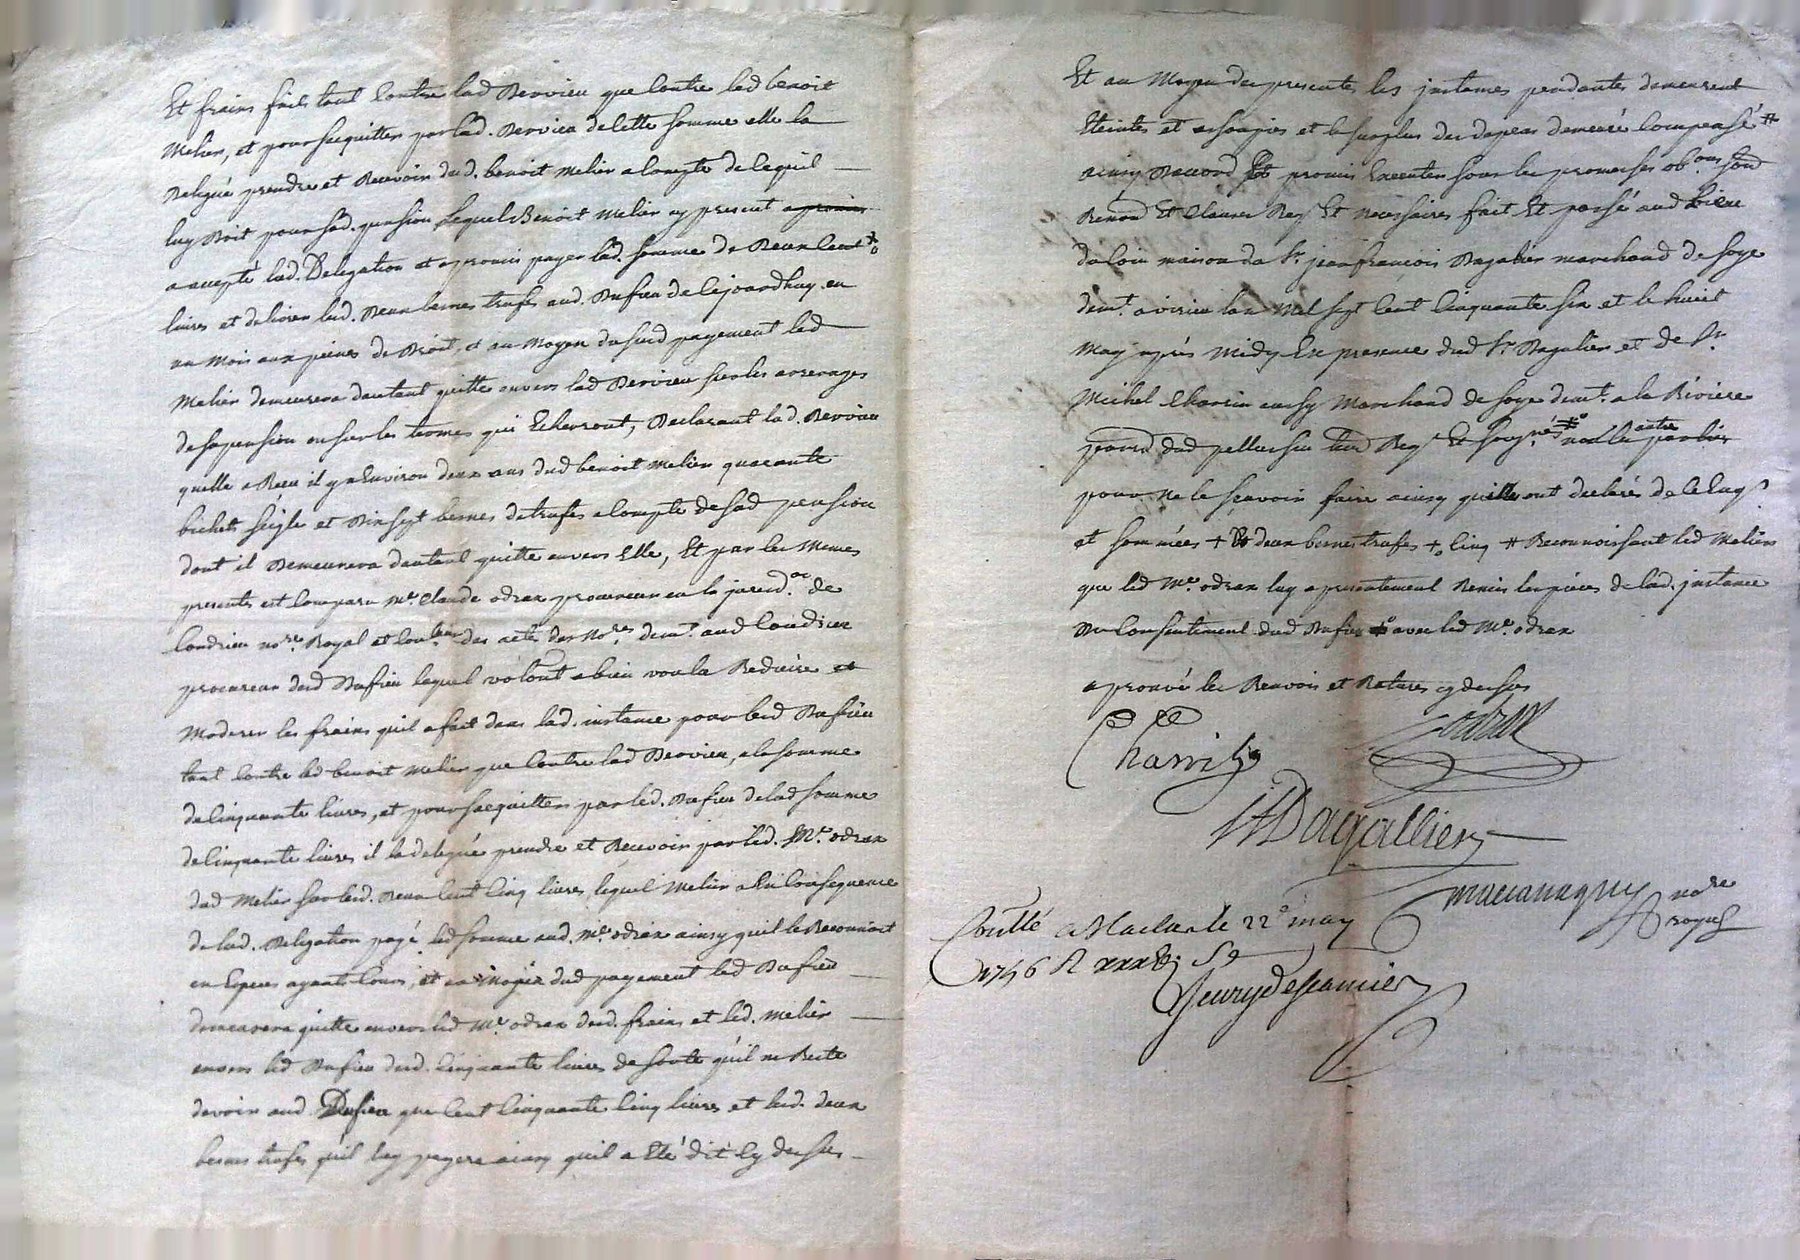 Et frains faits tant Contre lad Dervieu que Contre led benoit
Melier, et pour sacquitter par lad. Dervieu de Cette somme elle la
Delegué prendre et Recevoir dud. benoit Melier a Compte de ce quil
luy Doit pour sad. pension Lequel Benoit Melier cy present a promis
a accepté lad. Delegation et a promis payer lad. somme de Deux Cent
livres et delivrer led. Deux bennes trufes aud. Dufieu de Cejourdhuy en
un Mois aux peines de Droit, et au Moyen dusud payement led
Melier demeurera dautant quitte envers lad Dervieu sur les arrerages
de sa pension ou sur les termes qui Echerront, Declarant lad. Dervieu
quelle a Receu il y a Environ deux ans dud benoit Melier quarante
bichets seigle et Dixsept bennes de trufes a Compte de sad pension
dont il Demeurera dautant quitte envers Elle, Et par les Memes
presentes est Comparu Me. Claude odrax procureur en la jurid.on de
Condrieu nore. Royal et Con des actes des Nores demt. aud Condrieu
procureur dud Dufieu lequel volont a bien voulu Reduire et
Moderer les frains quil a fait dans lad. instance pour led Dufieu
tant Contre led benoit Melier que Contre lad Dervieu, a la somme
de Cinquante livres, et pour sacquitter par led. Dufieu de lad somme
de Cinquante livres il la delegué prendre et Recevoir par led. Me. odrax
dud Melier sur led. Deux Cent Cinq livres, lequel Melier a En Consequence
de lad. Delegation payé lad somme aud. Me. odrax ainsy quil le Reconnoit
en Especes ayants Cours, et au Moyen dud payement led Dufieu
demeurera quitte envers led Me. odrax desd. frains et led. Melier
envers led Dufieu desd. Cinquante livres de sorte quil ne Reste
devoir aud. Dufieu que Cent Cinquante Cinq livres et led. deux
bennes trufes quil luy payera ainsy quil a Eté dit Cy dessus
Et au Moyen des presentes les instances pendantes demeurent
Eteintes et assoupies et le surplus des depens demeuré Compensé #
ainsy Daccord promis Executer sous les promesses ob.ons soud
Renond Et Clauses Reqt Et necessaires fait Et passé aud
du loin maison du Sr. jean francois Dagalier marchand de soye
demt. a virieu lan Mil sept Cent Cinquante six et le huit
May après Midy En presence dud Sr Dagalier et de Sr.
Michel Charrin aussy Marchand de soye demt. a la Riviere
parrd dud pellussin tend Reqt Et soug.nés # non les autres parties
pour ne le sçavoir faire ainsy quilles ont declaré de Ce Enqs
et sommées + & deux bennes trufes +o Cinq # Reconnoissant led Melier
que led Me. odrax luy a presentement Remis les pieces de lad. instance
Du Consentement dud Dufieu #o avec led Me. odrax
aprouvé les Renvois et Ratures cy dessus
Charrin odrax
Dagallier
nore
royal
Contlé a Maclas le 22e may
1756
Fleurydescamier